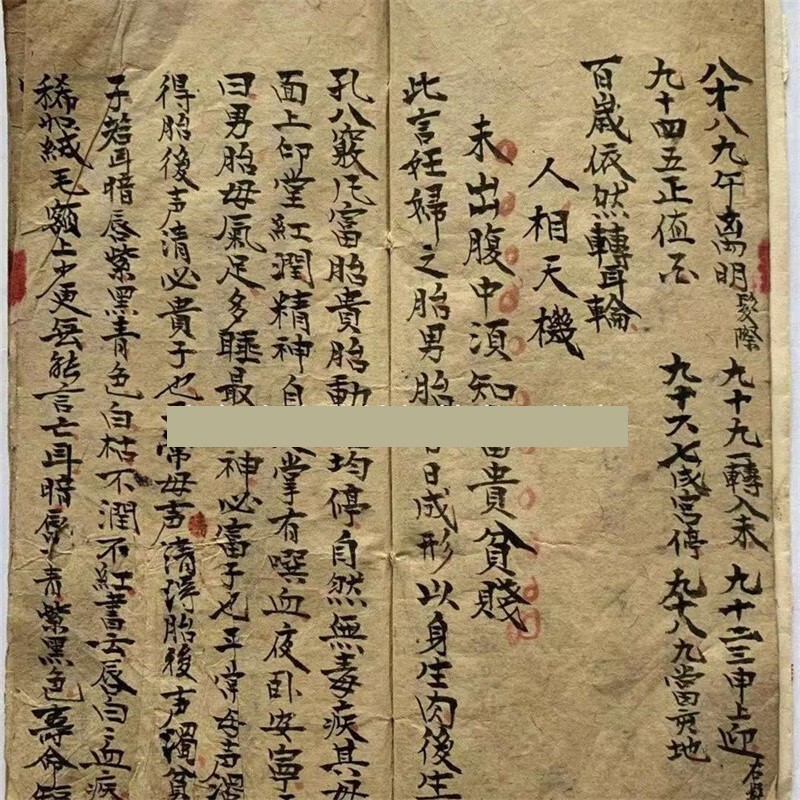 八十八九午离明 髮際 九十九一轉入未 九十二三申上迎
九十四五正值酉 九十六七戌宮停 九十八九當亥地
百歲依然轉耳輪
人相天機
未出腹中須知富貴貧賤
此言妊婦之胎男胎 日成形以身生肉後生
孔八竅凡富胎貴胎動 均停自然無毒疾其母
面上印堂紅潤精神自 掌有噀血夜卧安寧
曰男胎母氣足多睡最 神必富子也平常母声濁
得胎後声清必貴子也 常母声清得胎後声濁貧
子若耳暗唇紫黑青色白枯不潤不紅書云唇白血疾
稀如絨毛額上少更 能言亡耳暗唇青紫黑色壽命短